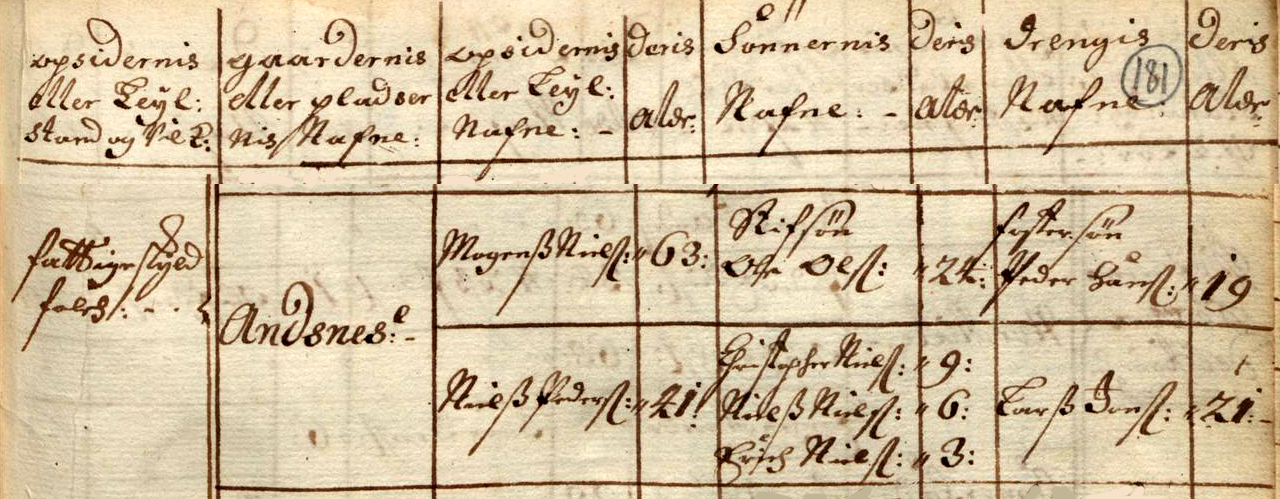 opsidernis
eller Leyl:
stand og Vilk:
gaardernis
eller pladser
nis Nafne:
opsidernis
eller Leyl:
Nafne: -
deris
alder:
Sönnernis
Nafne: -
deris
alder:
drengis
Nafne:
181
deris
alder:
fattige skyld
folch: - -
Andsnes: -
Mogenß Nielß:
" 63:
Stifsön
Ole Olß:
" 24:
fostersön
Peder Hanß:
" 19
Nielß Pederß:
" 41:
Christopher Nielß: " 9:
Nielß Nielß: " 6:
Erich Nielß: " 3:
Larß Jonß:
" 21: -